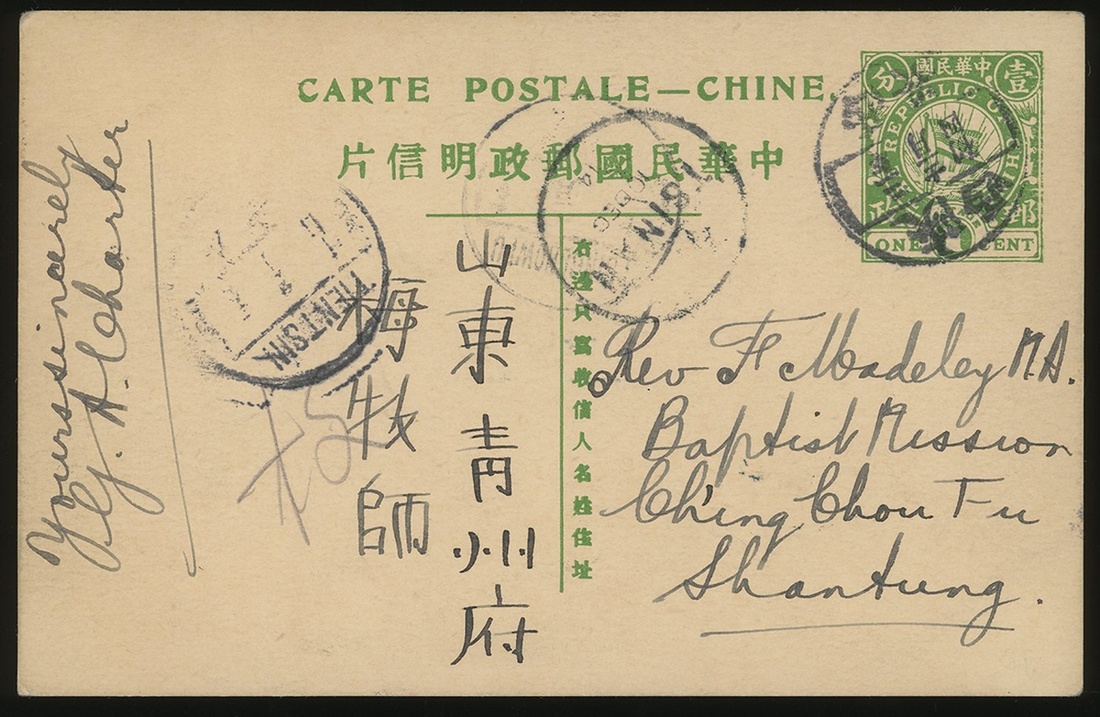 CARTE POSTALE—CHINE.
中華民國郵政明信片
中華民國
壹
分
REPUBLIC OF
郵
政
ONE CENT
右邊只寫收信人名姓住址
山東青州府
梅牧師
Rev F Madeley M.A.
Baptist Mission
Ch'ing Chou Fu
Shantung.
Yours sincerely
A. Charter
TIENTSIN
TSINAN
DEC